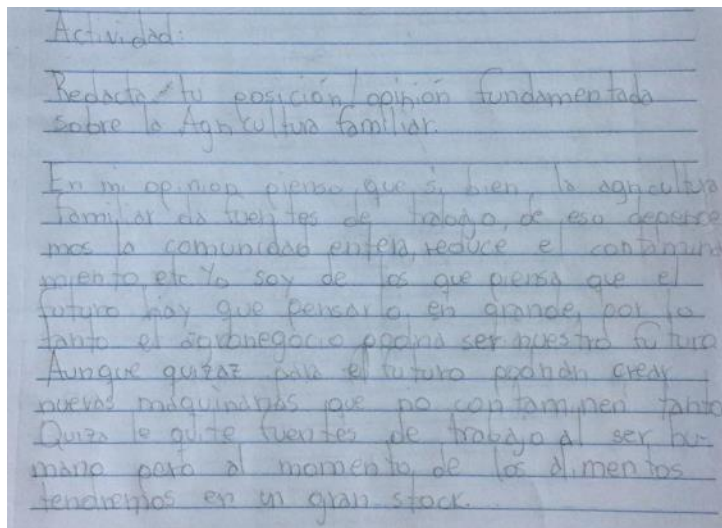 Actividad:
Redacta tu posición/opinión fundamentada
sobre la Agricultura familiar.
En mi opinion pienso que si bien, la agricultura
familiar da fuentes de trabajo, de eso depende
mos la comunidad entera, reduce el contamina
miento, etc. Yo soy de los que piensa que el
futuro hay que pensarlo en grande, por lo
tanto el agronegocio podria ser nuestro futuro
Aunque quizaz para el futuro podrian crear
nuevas maquinarias que no contaminen tanto
Quiza le quite fuentes de trabajo al ser hu-
mano pero al momento de los alimentos
tendremos en un gran stock.